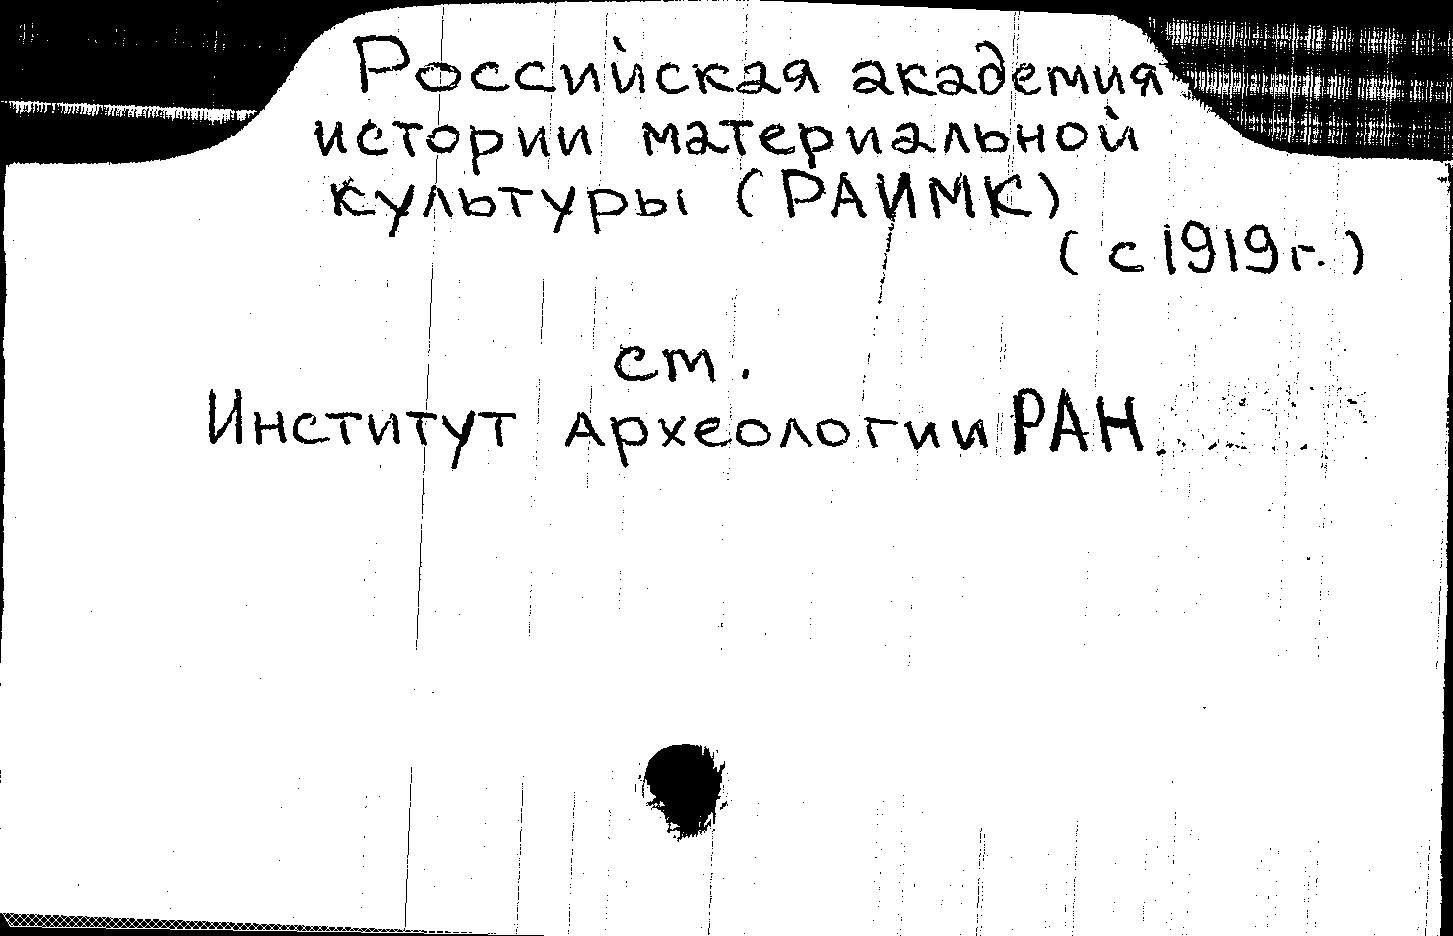 Российская академия
истории материальной
культуры (РАИМК)
(с 1919 г.)
ст.
Институт археологии РАН